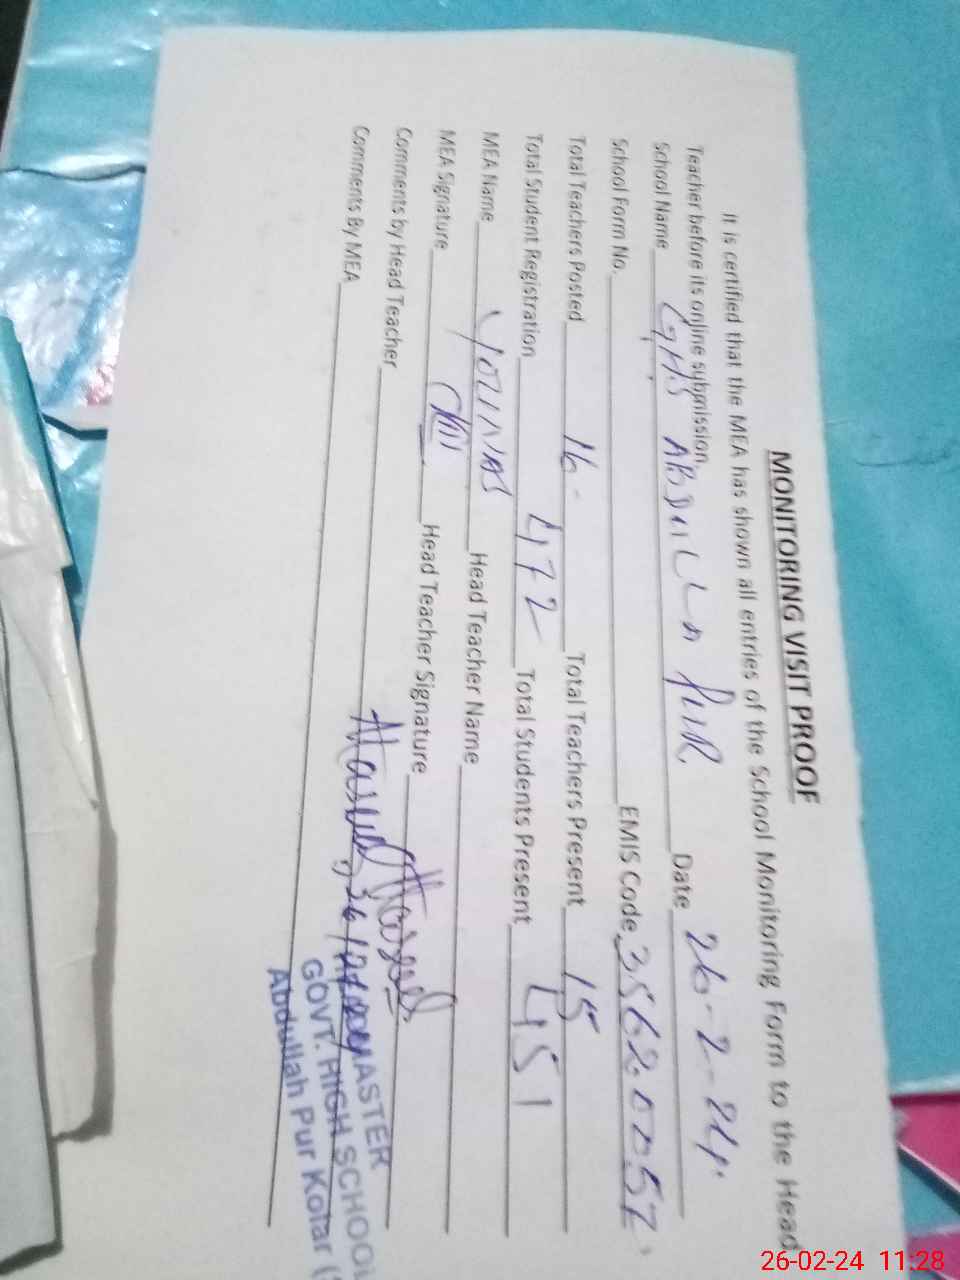 MONITORING VISIT PROOF
It is certified that the MEA has shown all entries of the School Monitoring Form to the Head
Teacher before its online submission.
School Name GHS ABDULLA PUR Date 26-2-24
School Form No. EMIS Code 35620057
Total Teachers Posted 16 Total Teachers Present 15
Total Student Registration 472 Total Students Present 451
MEA Name YOUNAS Head Teacher Name
MEA Signature Head Teacher Signature
Comments by Head Teacher
Comments By MEA
MASTER
GOVT. HIGH SCHOOL
Abdullah Pur Kolar (
26-02-24 11:28